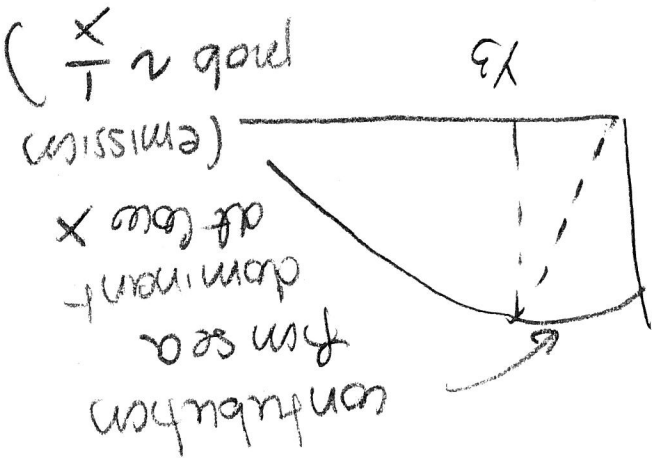 contribution
from sea
dominant
at low x
(emission
prob ~ 1/x)
1/3